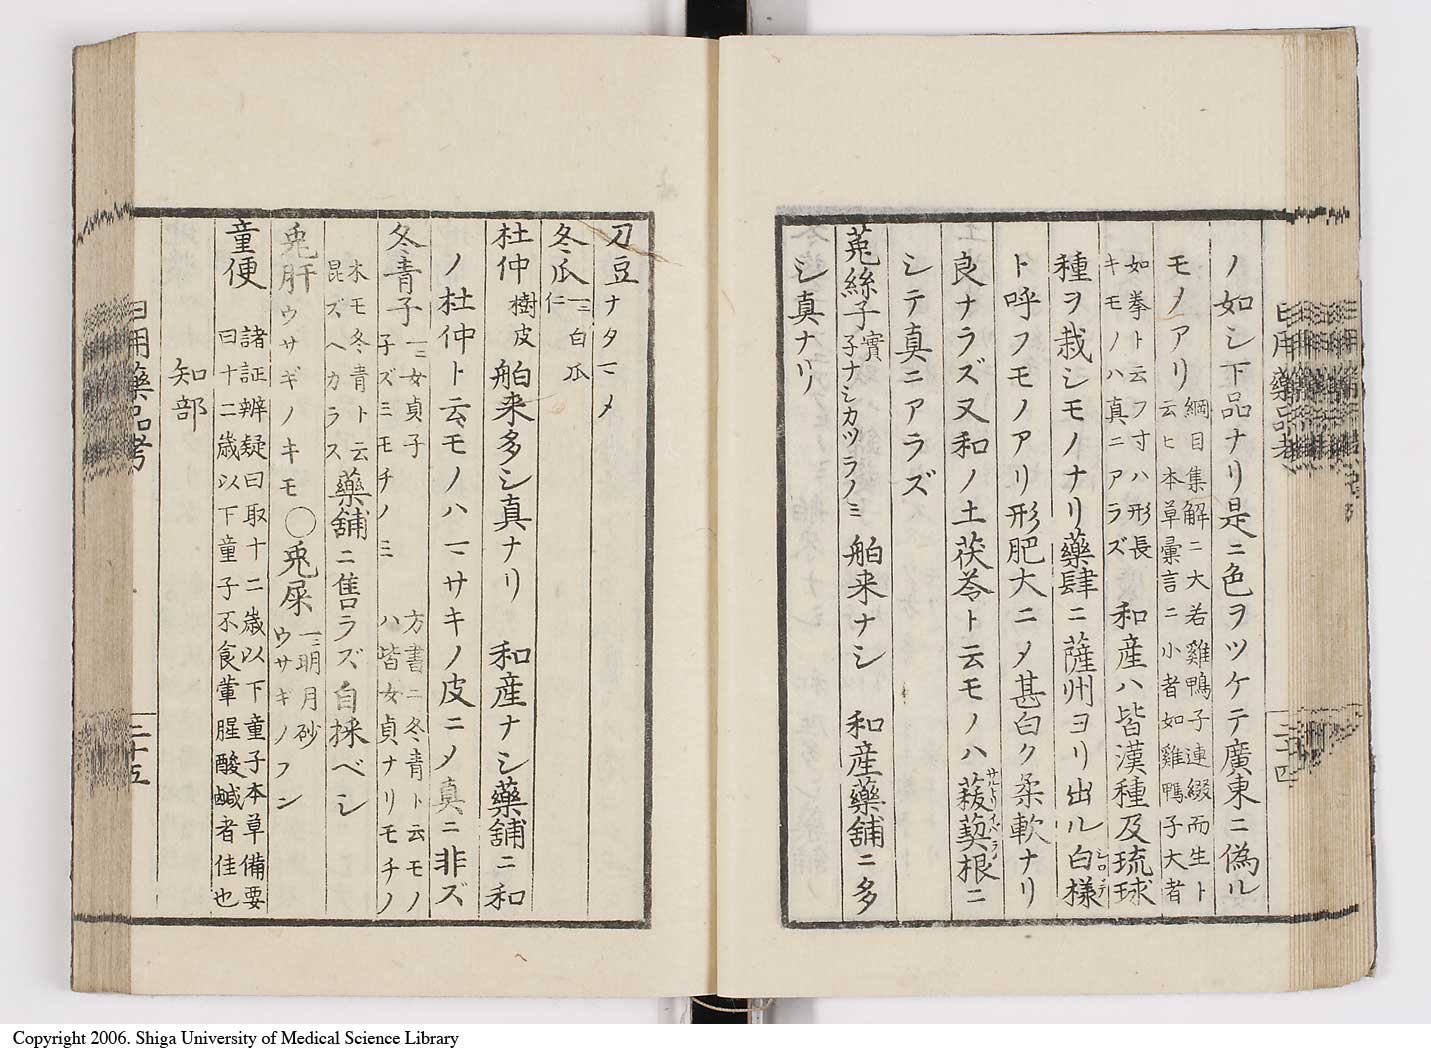 ノ如シ下品ナリ是ニ色ヲツケテ廣東ニ偽ル
モノアリ綱目集解ニ大若雞鴨子連綴而生ト
云ヒ本草彙言ニ小者如雞鴨子大者
如拳ト云フ寸ハ形長
キモノハ真ニアラズ和産ハ皆漢種及琉球
種ヲ栽シモノナリ藥肆ニ薩州ヨリ出ル白様
ト呼フモノアリ形肥大ニメ甚白ク柔軟ナリ
良ナラズ又和ノ土茯苓ト云モノハ菝葜根ニ
シテ真ニアラズ
菟絲子實
子ナシカツラノミ
舶来ナシ 和産藥舗ニ多
シ真ナリ
日用藥品考
二十四
刀豆ナタマメ
冬瓜仁
一ニ白瓜
杜仲樹皮 舶来多シ真ナリ 和産ナシ藥舗ニ和
ノ杜仲ト云モノハマサキノ皮ニメ真ニ非ズ
冬青子一ニ女貞子
子ズミモチノミ
方書ニ冬青ト云モノ
ハ皆女貞ナリモチノ
木モ冬青ト云
昆ズヘカラス
藥舗ニ售ラズ自採ベシ
兎肝ウサギノキモ〇兎屎一ニ明月砂
ウサギノフン
童便 諸証辨疑曰取十二歳以下童子本草備要
曰十二歳以下童子不食葷腥酸鹹者佳也
知部
日用藥品考
二十五
Copyright 2006. Shiga University of Medical Science Library